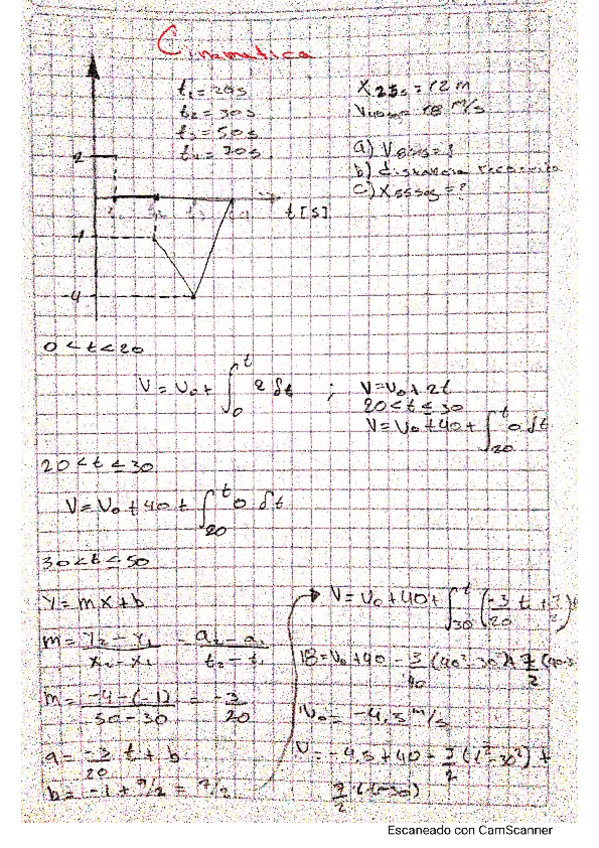 Cinematica
t₁ = 20s
t₂ = 30s
t₃ = 50s
t₄ = 70s
X25s = 12 m
V40seg = 18 m/s
a) V8seg = ?
b) distancia recorrida
c) X55seg = ?
2
-1
-4
t₁ t₂ t₃ t₄ t[s]
0 < t < 20
V = V₀ + ∫₀ᵗ 2 δt ; V = V₀ + 2t
20 < t ≤ 30
V = V₀ + 40 + ∫₂₀ᵗ 0 δt
20 < t ≤ 30
V = V₀ + 40 + ∫₂₀ᵗ 0 δt
30 < t ≤ 50
Y = mx + b
m = Y₂ - Y₁ / x₂ - x₁ = a₂ - a₁ / t₂ - t₁
m = -4 - (-1) / 50 - 30 = -3 / 20
a = -3/20 t + b
b = -1 + 9/2 = 7/2
V = V₀ + 40 + ∫₃₀ᵗ (-3/20 t + 7/2)
18 = V₀ + 40 - 3/40 (40² - 30²) + 7/2 (40-3
V₀ = -4,5 m/s
V = -4,5 + 40 - 3/2 (t² - 30²) +
7/2 (t-30)
Escaneado con CamScanner